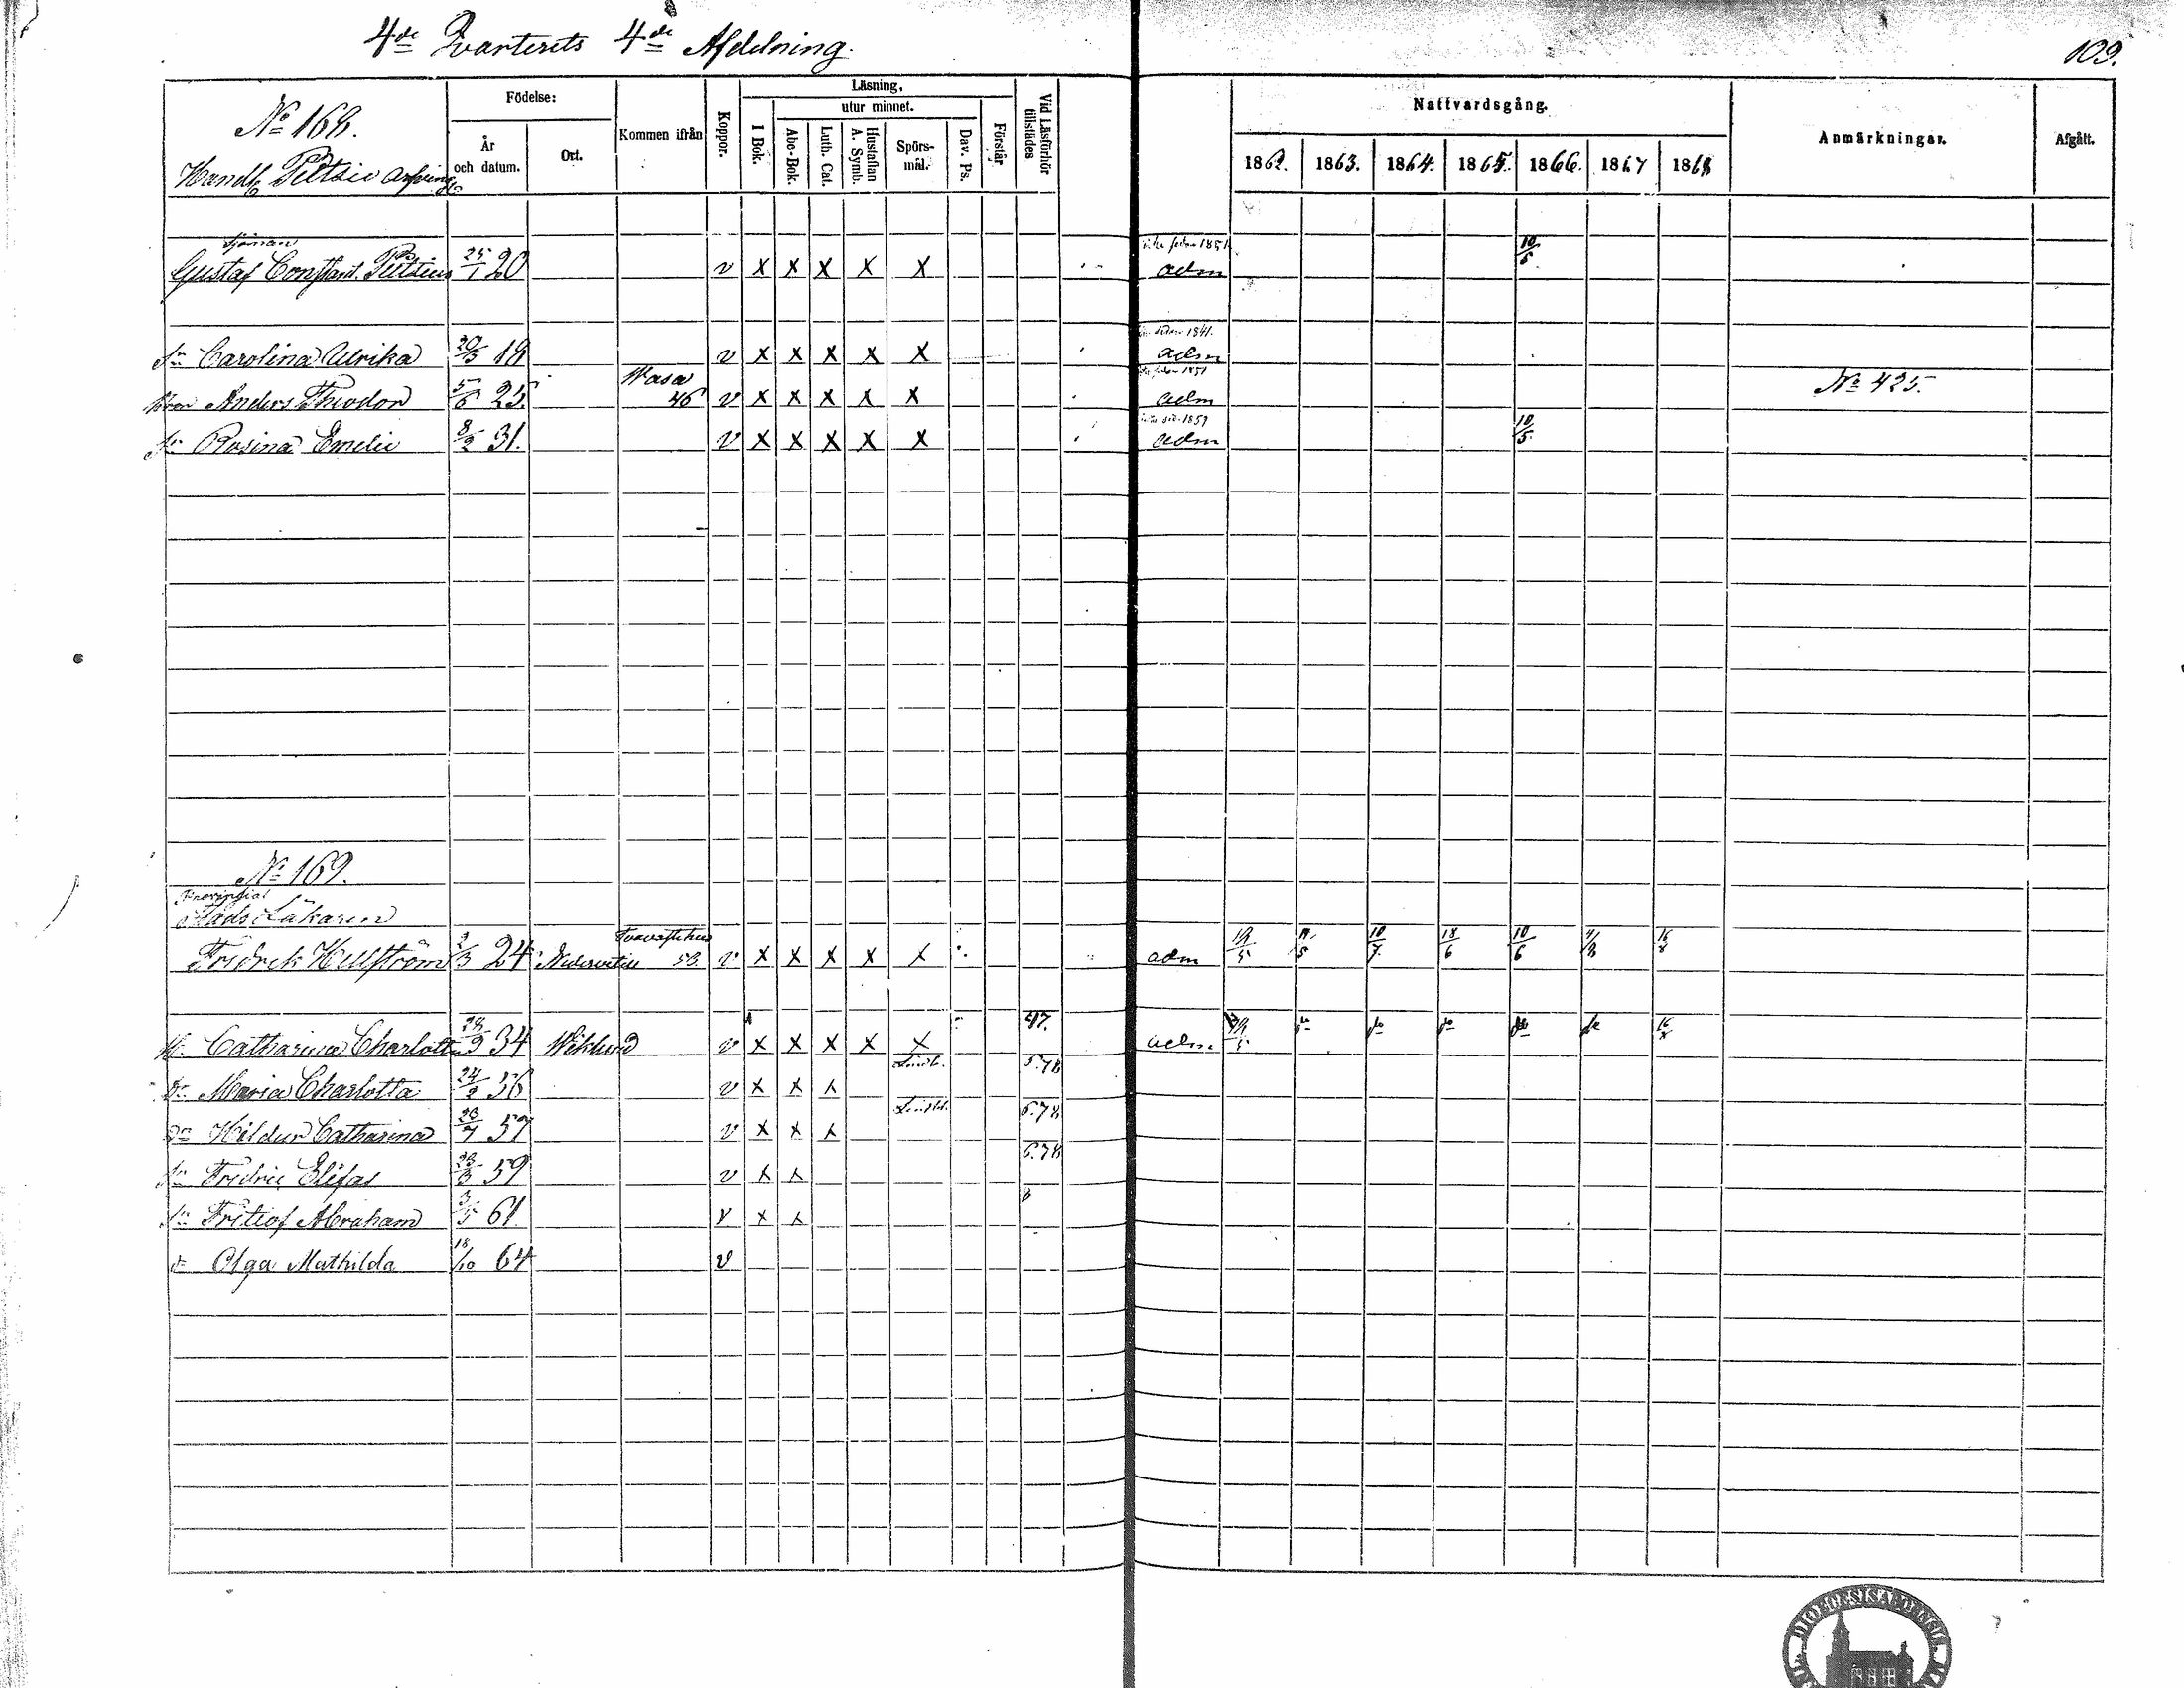 4de Qvarterets 4de Afdelning.
109.
No 168.
Handl. Peltzii Arfvingar
Födelse:
År och datum.
Ort.
Kommen ifrån
Koppor.
Läsning.
utur minnet.
I Bok.
Abc-Bok.
Luth. Cat.
Hustaflan A. Symb.
Spörsmål.
Dav. Ps.
Förstår
Vid Läsförhör tillstädes
Nattvardsgång.
1862. 1863. 1864. 1865. 1866. 1867 1868
Anmärkningar.
Afgått.
Sjöman
Gustaf Constant. 25/1 20 v x x x x x adm 10/5
Carolina Ulrika 18 v x x x x x 1841. adm
Anders Theodor 5/6 25. Wasa 46 v x x x x x adm No 425.
Rosina Emelie 8/2 31. v x x x x x adm 10/5.
No 169.
Provincial
Stads Läkaren
Fredrik Hellström 24 Nedervetil 58. v x x x x x adm 19/5 10/7. 18/6 10/6
47.
Catharina Charlotta 34 Wiklund v x x x x x adm.
Maria Charlotta 24/2 56 v x x x 5.78
Hildur Catharina 57 v x x x 6.78
Fredric Elifas 59 v x x 6.78
Fritiof Abraham 3/5 61 v x x 8
Olga Mathilda 18/10 64 v